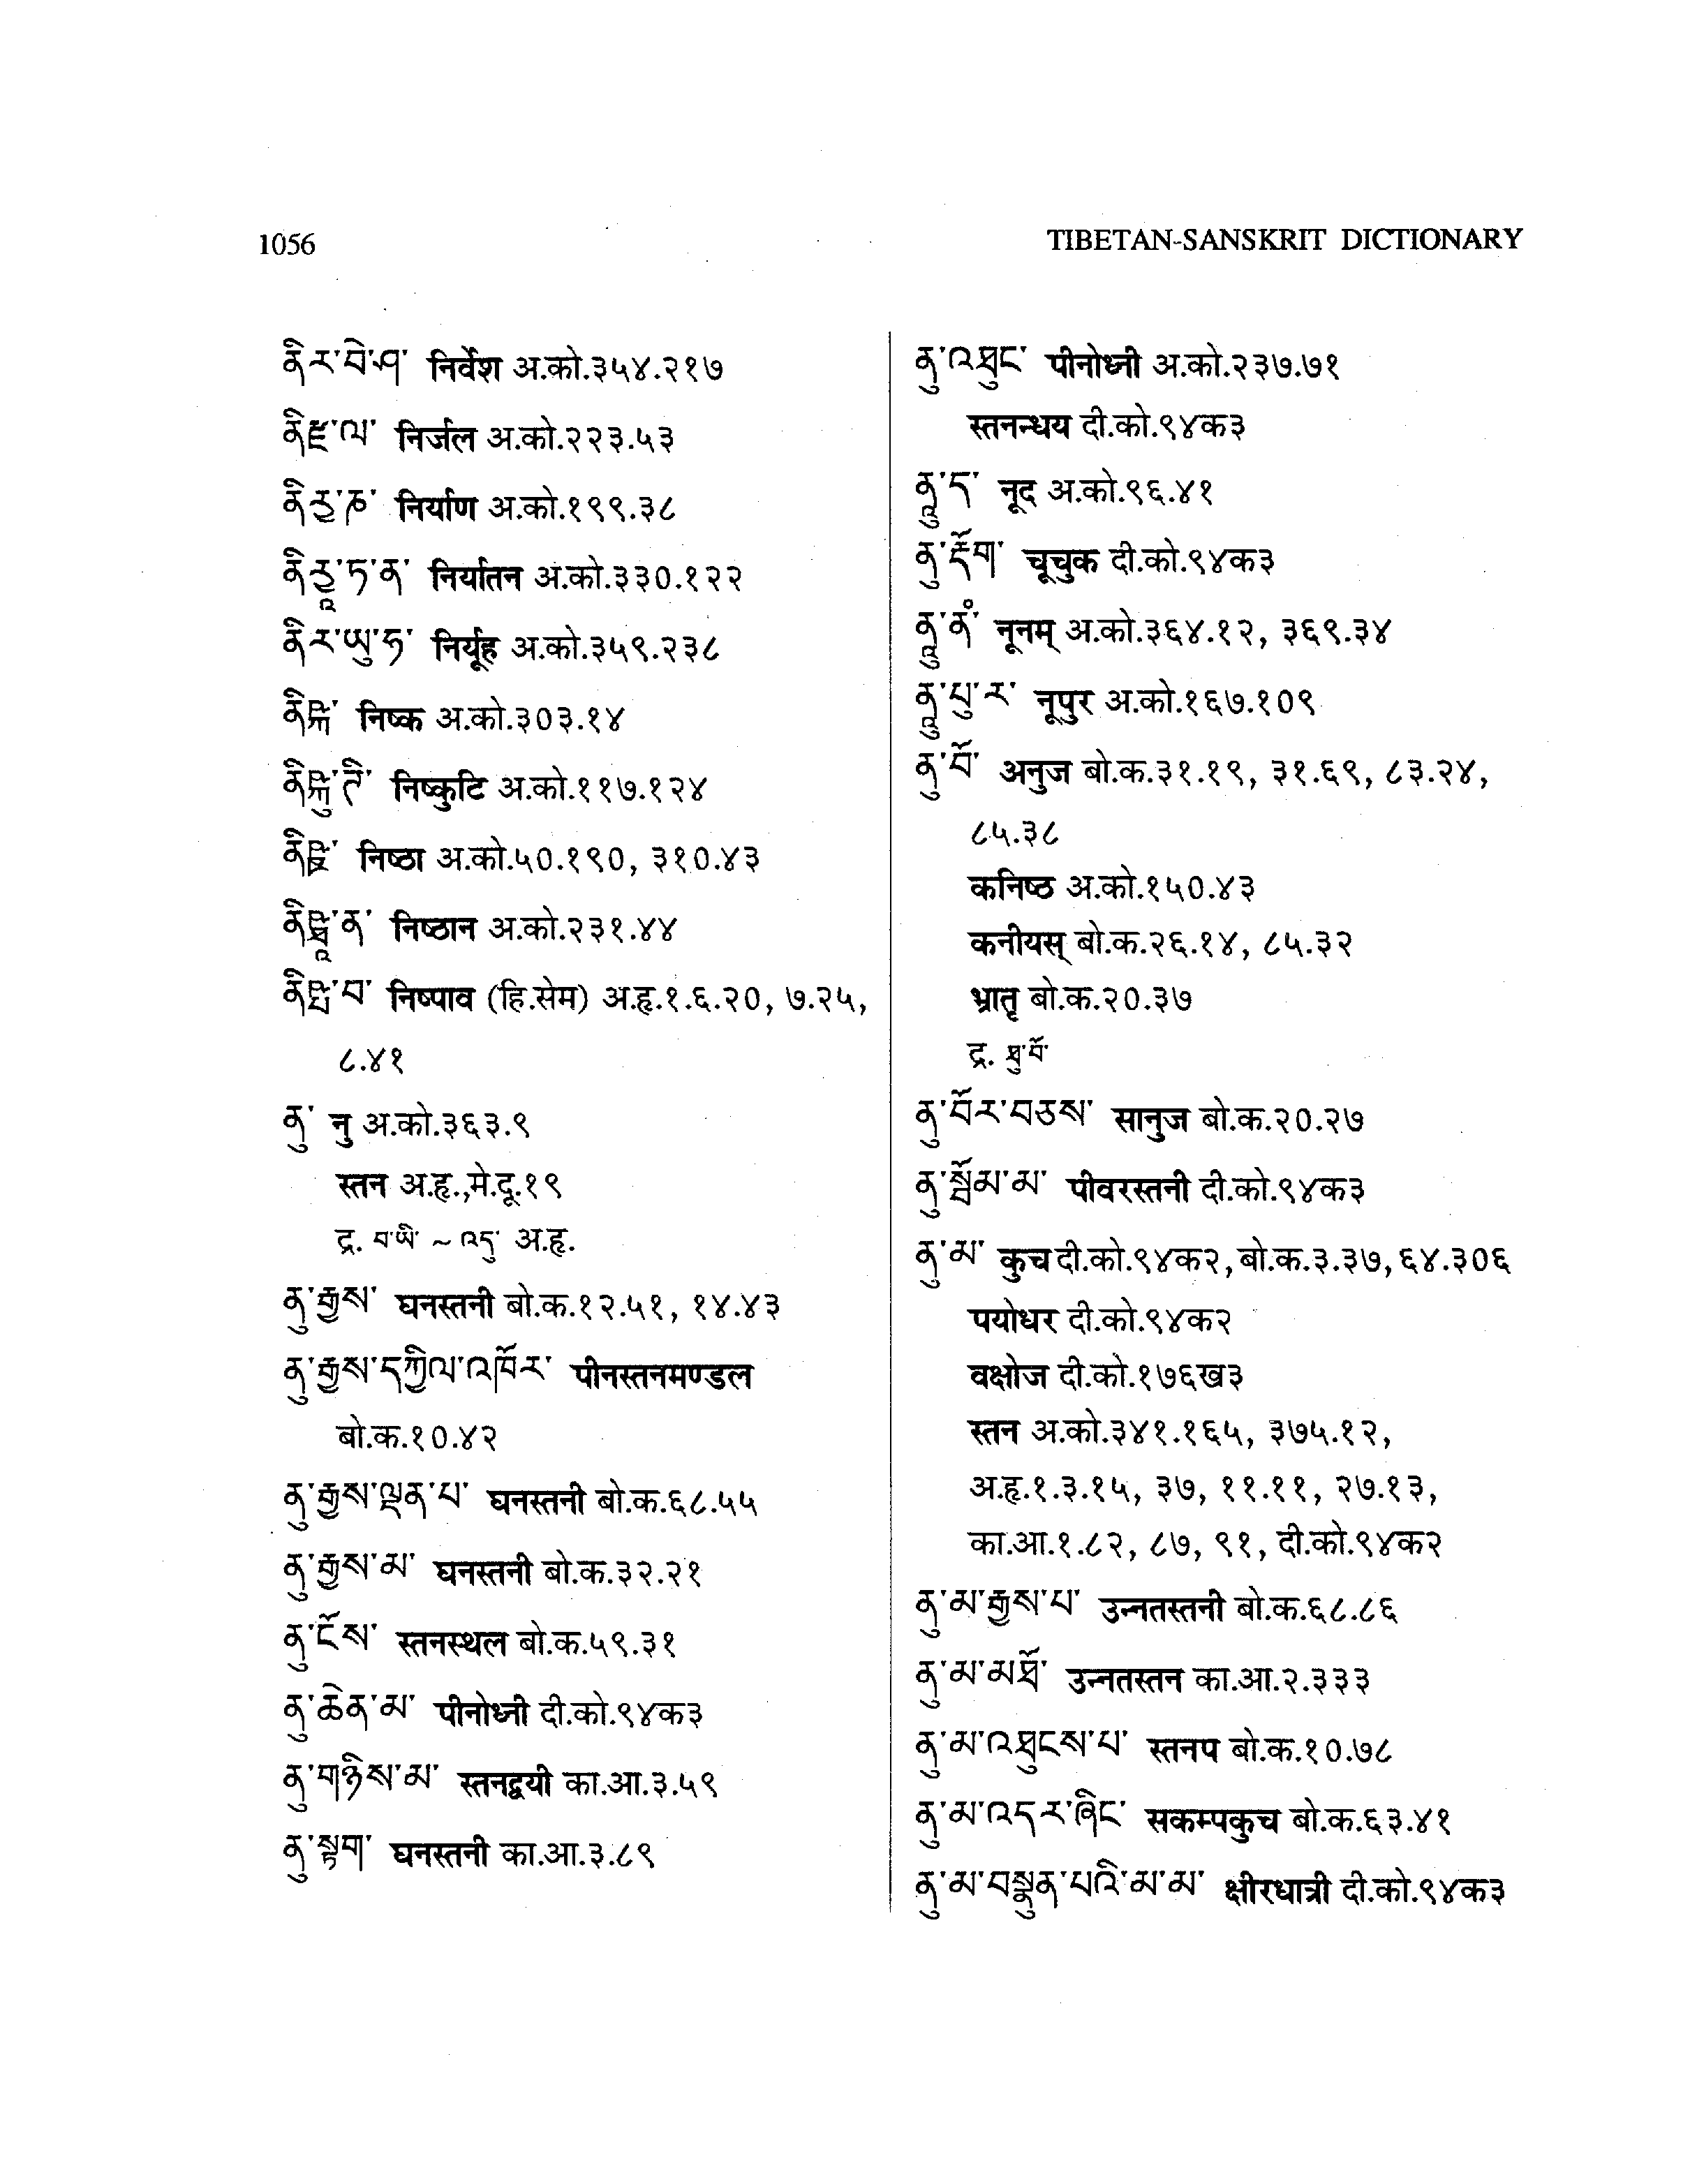 1056
TIBETAN-SANSKRIT DICTIONARY
ནིར་བེ་ཤ་ निर्वेश अ.को.३५४.२१७
ནིརྫ་ལ་ निर्जल अ.को.२२३.५३
ནིརྱ་ཎ་ निर्याण अ.को.१९९.३८
ནིརྱཱ་ཏ་ན་ निर्यातन अ.को.३३०.१२२
ནིར་ཡུ་ཧ་ निर्यूह अ.को.३५९.२३८
ནིཥྐ་ निष्क अ.को.३०३.१४
ནིཥྐུ་ཊི་ निष्कुटि अ.को.११७.१२४
ནིཥྛ་ निष्ठा अ.को.५०.१९०, ३१०.४३
ནིཥྠཱ་ན་ निष्ठान अ.को.२३१.४४
ནིཥྤ་བ་ निष्पाव (हि.सेम) अ.हृ.१.६.२०, ७.२५,
८.४१
ནུ་ नु अ.को.३६३.९
स्तन अ.हृ.,मे.दू.१९
द्र. བ་ཡི་ ~ འདུ་ अ.हृ.
ནུ་རྒྱས་ घनस्तनी बो.क.१२.५१, १४.४३
ནུ་རྒྱས་དཀྱིལ་འཁོར་ पीनस्तनमण्डल
बो.क.१०.४२
ནུ་རྒྱས་ལྡན་པ་ घनस्तनी बो.क.६८.५५
ནུ་རྒྱས་མ་ घनस्तनी बो.क.३२.२१
ནུ་ངོས་ स्तनस्थल बो.क.५९.३१
ནུ་ཆེན་མ་ पीनोध्नी दी.को.९४क३
ནུ་གཉིས་མ་ स्तनद्वयी का.आ.३.५९
ནུ་སྟག་ घनस्तनी का.आ.३.८९
ནུ་འཐུང་ पीनोध्नी अ.को.२३७.७१
स्तनन्धय दी.को.९४क३
ནཱུ་ད་ नूद अ.को.९६.४१
ནུ་རྡོག་ चूचुक दी.को.९४क३
ནཱུ་ནཾ་ नूनम् अ.को.३६४.१२, ३६९.३४
ནཱུ་པུ་ར་ नूपुर अ.को.१६७.१०९
ནུ་བོ་ अनुज बो.क.३१.१९, ३१.६९, ८३.२४,
८५.३८
कनिष्ठ अ.को.१५०.४३
कनीयस् बो.क.२६.१४, ८५.३२
भ्रातृ बो.क.२०.३७
द्र. ཐུ་བོ་
ནུ་བོར་བཅས་ सानुज बो.क.२०.२७
ནུ་སྦོམ་མ་ पीवरस्तनी दी.को.९४क३
ནུ་མ་ कुच दी.को.९४क२, बो.क.३.३७, ६४.३०६
पयोधर दी.को.९४क२
वक्षोज दी.को.१७६ख३
स्तन अ.को.३४१.१६५, ३७५.१२,
अ.हृ.१.३.१५, ३७, ११.११, २७.१३,
का.आ.१.८२, ८७, ९१, दी.को.९४क२
ནུ་མ་རྒྱས་པ་ उन्नतस्तनी बो.क.६८.८६
ནུ་མ་མཐོ་ उन्नतस्तन का.आ.२.३३३
ནུ་མ་འཐུངས་པ་ स्तनप बो.क.१०.७८
ནུ་མ་འདར་ཞིང་ सकम्पकुच बो.क.६३.४१
ནུ་མ་བསྣུན་པའི་མ་མ་ क्षीरधात्री दी.को.९४क३